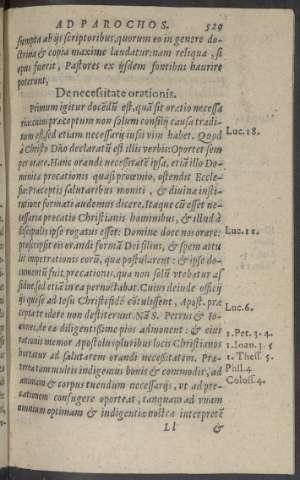 AD PAROCHOS. 529
sumpta ab ijs scriptoribus, quorum eo in genere do-
ctrina & copia maxime laudatur: nam reliqua, si
opus fuerit, Pastores ex ijsdem fontibus haurire
poterunt.
De necessitate orationis.
Primum igitur docendũ est, quã sit oratio necessa
ria: cuius præceptum non solum consilij causa tradi-
tum est, sed etiam necessarij iussi vim habet. Quod
à Christo Dño declaratũ est illis verbis: Oportet sem
per orare. Hanc orandi necessitatẽ ipsa. etiã illo Do-
minica precationis quasi proœmio, ostendit Eccle-
sia: Præceptis salutaribus moniti, & diuina insti-
tutione formati audemus dicere. Itaque cũ esset ne-
cessaria precatio Christianis hominibus, & illud à
discipulis ipse rogatus esset: Domine doce nos orare:
præscripsit eis orandi formã Dei filius, & spem attu
lit impetrationis eorũ, quæ postularent: & ipse do-
cumentũ fuit, precationis, qua non solũ vtebatur as
sidue, sed etiã in ea pernoctabat. Cuius deinde officij
ijs qui se ad Iesu Christi fidẽ cõtulissent, Apost. præ
cepta tradere non destiterunt. Nã S. Petrus & Io-
annes, de ea diligentissime pios admonent: & eius
rationis memor Apostolus pluribus locis Christianos
hortatur ad salutarem orandi necessitatem. Præ-
terea tam multis indigemus bonis & commodis, ad
animam & corpus tuendum necessarijs, vt ad pre-
cationem confugere oporteat, tanquam ad vnam
omnium optimam & indigentiæ nostræ interpretẽ
Ll &
Luc. 18.
Luc. 11.
Luc. 6.
1. Pet. 3. 4.
1. Ioan. 3. 5
1. Thess. 5.
Phil. 4
Coloss. 4.